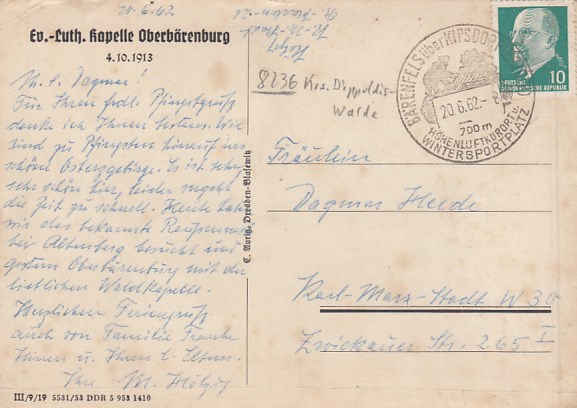 20.6.62
Ev.-Luth. Kapelle Oberbärenburg
4.10.1913
M. l. Dagmar!
Für Ihren frdl. Pfingstgruß
danke ich Ihnen bestens. Wir
sind zu Pfingsten hinauf ins
schöne Osterzgebirge. Es ist sehr,
sehr schön hier, leider vergeht
die Zeit zu schnell. Heute haben
wir das bekannte
bei Altenberg besucht und
gestern Oberbärenburg mit der
lieblichen Waldkapelle.
Herzlichen Feriengruß
auch von Familie Franke
Ihnen u. Ihren l. Eltern.
Ihre M.
III/9/19 5531/53 DDR 5 953 1410
E. Aurig, Dresden-Blasewitz
8236 Krs. Dippoldis-
walde
BÄRENFELS über KIPSDORF
20.6.62
700 m
HÖHENLUFTKURORT U.
WINTERSPORTPLATZ
DEUTSCHE
DEMOKRATISCHE REPUBLIK
10
Fräulein
Dagmar Heede
Karl-Marx-Stadt W 30
Zwickauer Str. 265. I